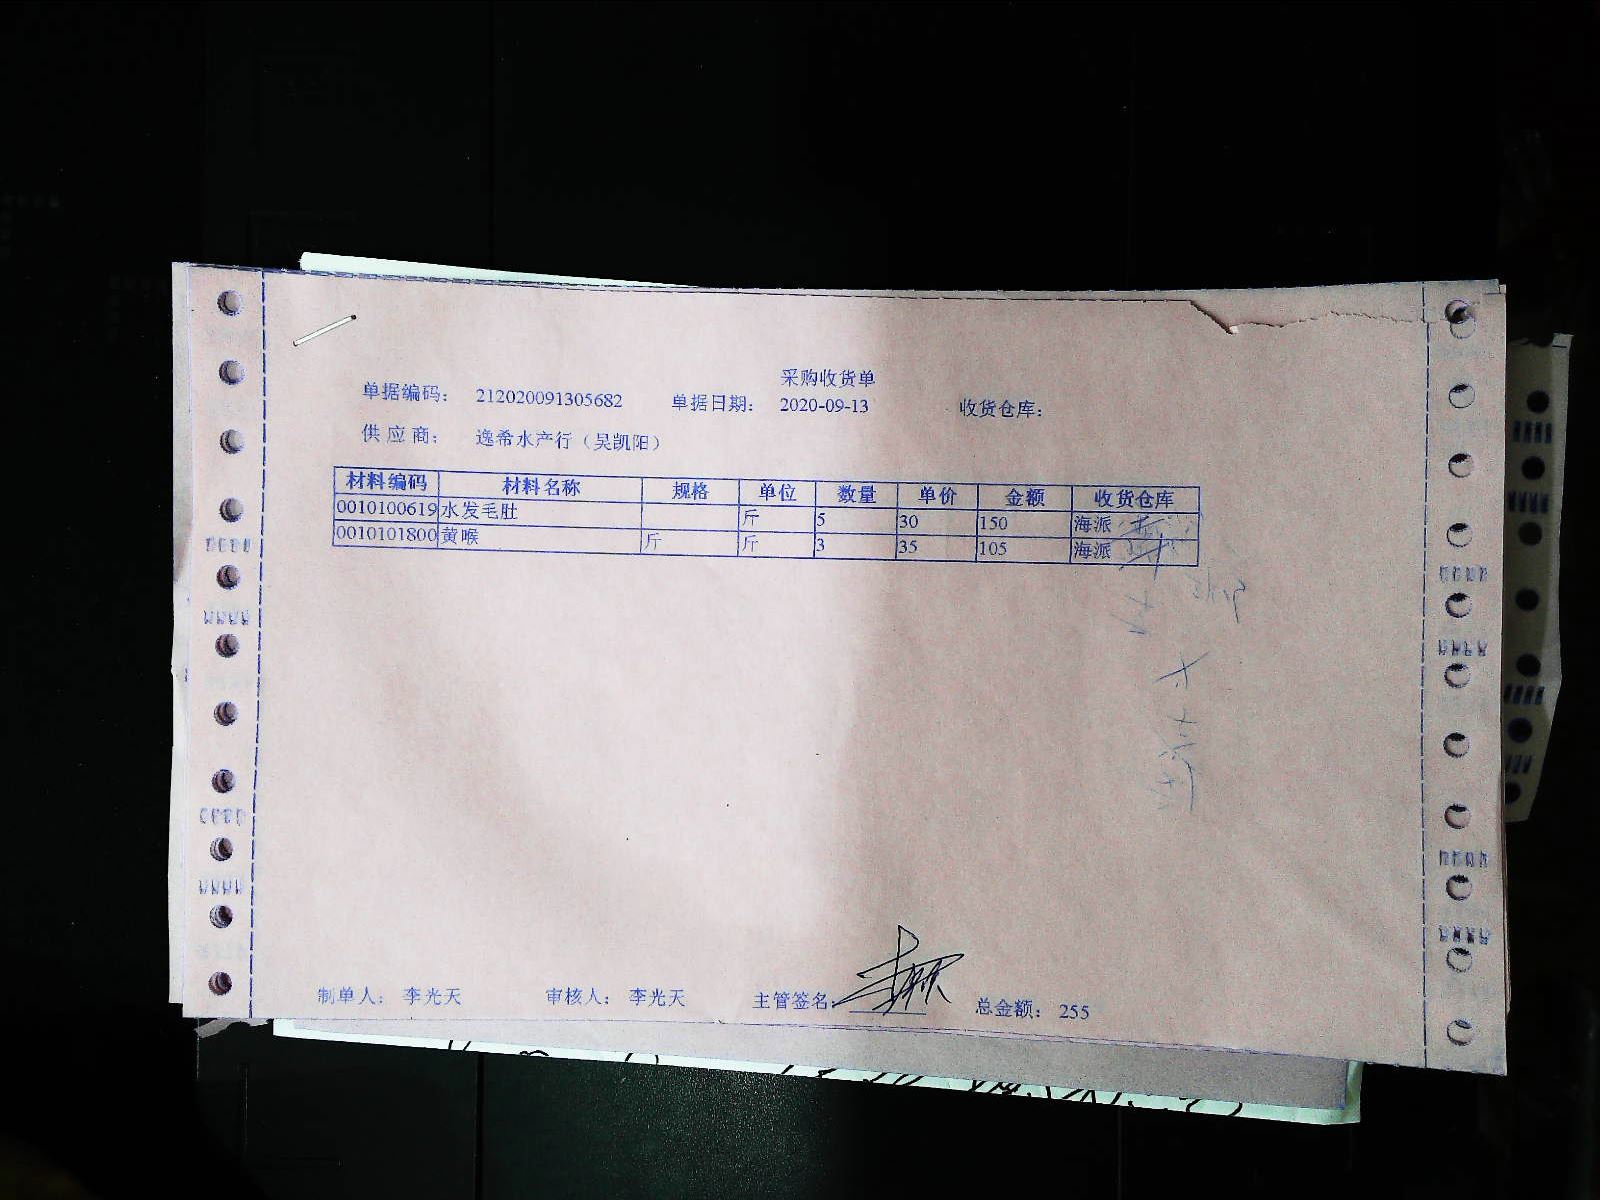 采购收货单
单据编码： 212020091305682 单据日期： 2020-09-13 收货仓库：
供应商： 逸希水产行（吴凯阳）
材料编码 材料名称 规格 单位 数量 单价 金额 收货仓库
0010100619 水发毛肚 斤 5 30 150 海派
0010101800 黄喉 斤 斤 3 35 105 海派
制单人： 李光天 审核人： 李光天 主管签名： 总金额： 255